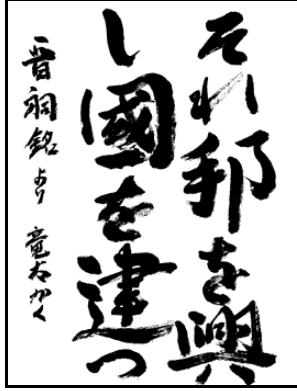 それ邦を興
し國を建つ
晋祠銘より 竜右かく